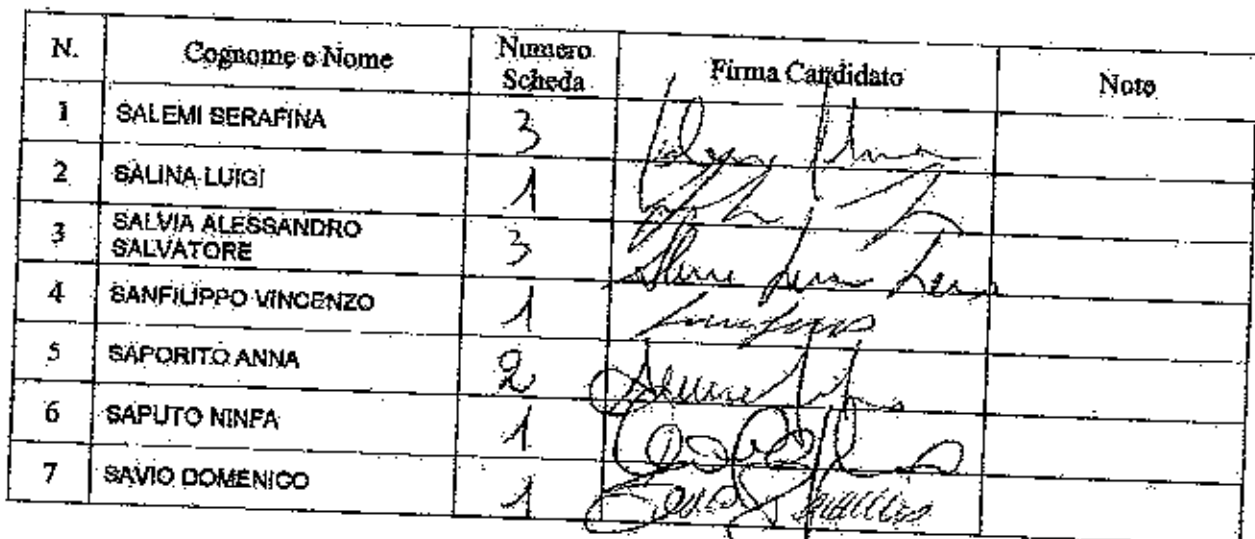 N. Cognome e Nome Numero Scheda Firma Candidato Note
1 SALEMI SERAFINA 3
2 SALINA LUIGI 1
3 SALVIA ALESSANDRO SALVATORE 3
4 SANFILIPPO VINCENZO 1
5 SAPORITO ANNA 2
6 SAPUTO NINFA 1
7 SAVIO DOMENICO 1